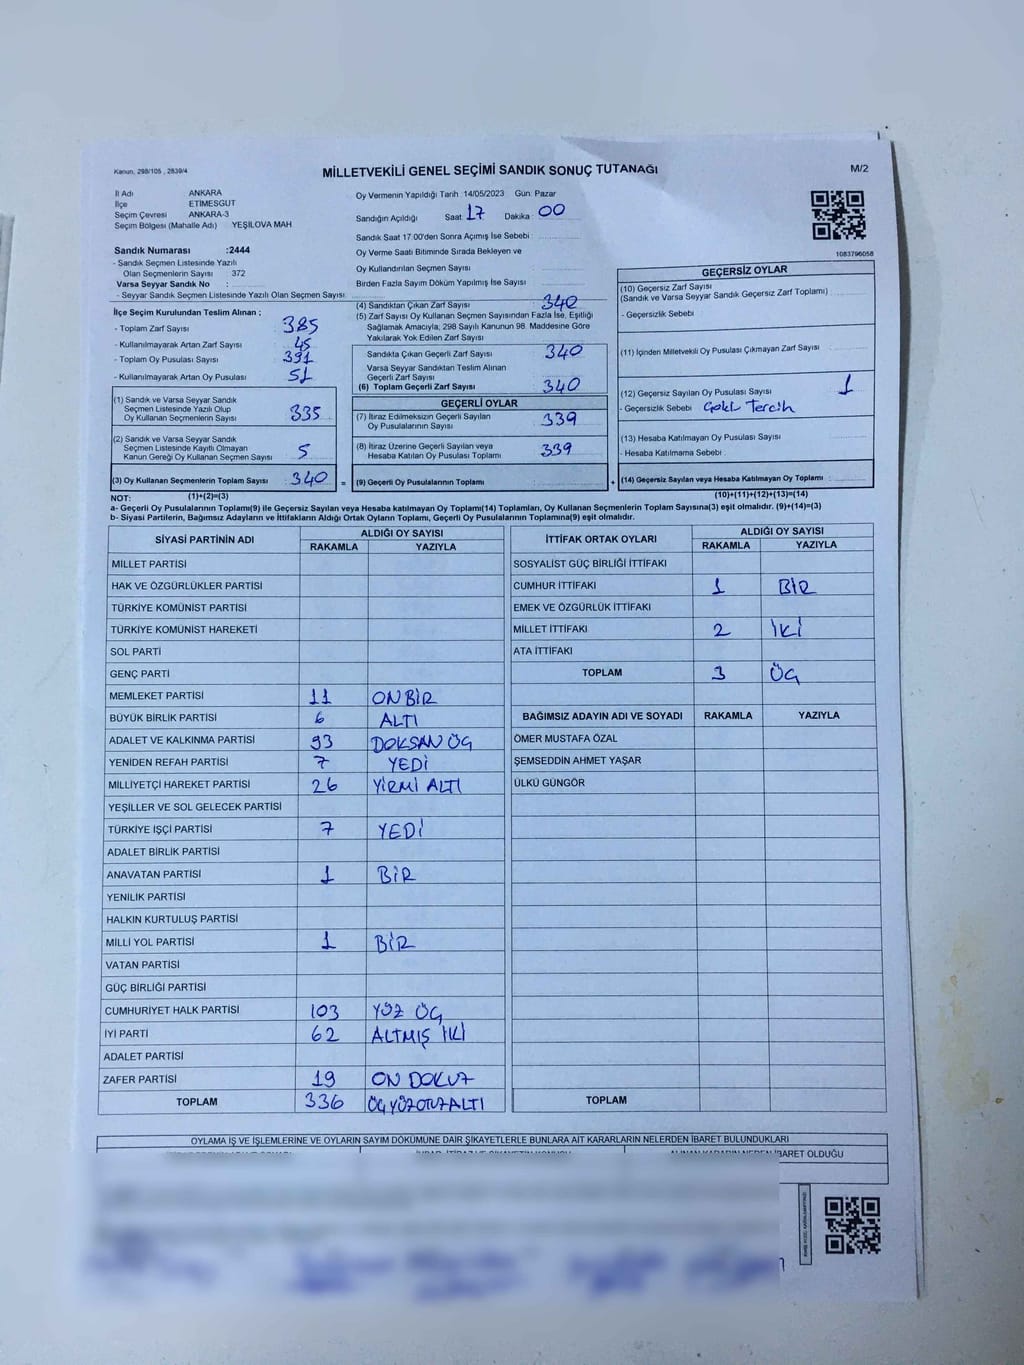 Kanun, 298/105 , 2839/4
MİLLETVEKİLİ GENEL SEÇİMİ SANDIK SONUÇ TUTANAĞI
M/2
İl Adı ANKARA
İlçe ETİMESGUT
Seçim Çevresi ANKARA-3
Seçim Bölgesi (Mahalle Adı) YEŞİLOVA MAH
Sandık Numarası :2444
- Sandık Seçmen Listesinde Yazılı
Olan Seçmenlerin Sayısı : 372
Varsa Seyyar Sandık No :
- Seyyar Sandık Seçmen Listesinde Yazılı Olan Seçmen Sayısı
Oy Vermenin Yapıldığı Tarih :14/05/2023 Gün: Pazar
Sandığın Açıldığı Saat 17 Dakika 00
Sandık Saat 17.00'den Sonra Açımış İse Sebebi :
Oy Verme Saati Bitiminde Sırada Bekleyen ve
Oy Kullandırılan Seçmen Sayısı
Birden Fazla Sayım Döküm Yapılmış İse Sayısı :
1083796058
İlçe Seçim Kurulundan Teslim Alınan ;
- Toplam Zarf Sayısı : 385
- Kullanılmayarak Artan Zarf Sayısı : 45
- Toplam Oy Pusulası Sayısı : 391
- Kullanılmayarak Artan Oy Pusulası : 51
(1) Sandık ve Varsa Seyyar Sandık
Seçmen Listesinde Yazılı Olup
Oy Kullanan Seçmenlerin Sayısı 335
(2) Sandık ve Varsa Seyyar Sandık
Seçmen Listesinde Kayıtlı Olmayan
Kanun Gereği Oy Kullanan Seçmen Sayısı 5
(3) Oy Kullanan Seçmenlerin Toplam Sayısı 340 =
(4) Sandıktan Çıkan Zarf Sayısı 340
(5) Zarf Sayısı Oy Kullanan Seçmen Sayısından Fazla İse, Eşitliği
Sağlamak Amacıyla, 298 Sayılı Kanunun 98. Maddesine Göre
Yakılarak Yok Edilen Zarf Sayısı
Sandıkta Çıkan Geçerli Zarf Sayısı 340
Varsa Seyyar Sandıktan Teslim Alınan
Geçerli Zarf Sayısı
(6) Toplam Geçerli Zarf Sayısı 340
GEÇERLİ OYLAR
(7) İtiraz Edilmeksizin Geçerli Sayılan
Oy Pusulalarının Sayısı 339
(8) İtiraz Üzerine Geçerli Sayılan veya
Hesaba Katılan Oy Pusulası Toplamı 339
(9) Geçerli Oy Pusulalarının Toplamı +
GEÇERSİZ OYLAR
(10) Geçersiz Zarf Sayısı
(Sandık ve Varsa Seyyar Sandık Geçersiz Zarf Toplamı)
- Geçersizlik Sebebi
(11) İçinden Milletvekili Oy Pusulası Çıkmayan Zarf Sayısı
(12) Geçersiz Sayılan Oy Pusulası Sayısı 1
- Geçersizlik Sebebi Çoklu Tercih
(13) Hesaba Katılmayan Oy Pusulası Sayısı
- Hesaba Katılmama Sebebi :
(14) Geçersiz Sayılan veya Hesaba Katılmayan Oy Toplamı :
NOT: (1)+(2)=(3) (10)+(11)+(12)+(13)=(14)
a- Geçerli Oy Pusulalarının Toplamı(9) ile Geçersiz Sayılan veya Hesaba katılmayan Oy Toplamı(14) Toplamları, Oy Kullanan Seçmenlerin Toplam Sayısına(3) eşit olmalıdır. (9)+(14)=(3)
b- Siyasi Partilerin, Bağımsız Adayların ve İttifakların Aldığı Ortak Oyların Toplamı, Geçerli Oy Pusulalarının Toplamına(9) eşit olmalıdır.
SİYASİ PARTİNİN ADI ALDIĞI OY SAYISI
RAKAMLA YAZIYLA
MİLLET PARTİSİ
HAK VE ÖZGÜRLÜKLER PARTİSİ
TÜRKİYE KOMÜNİST PARTİSİ
TÜRKİYE KOMÜNİST HAREKETİ
SOL PARTİ
GENÇ PARTİ
MEMLEKET PARTİSİ 11 ONBİR
BÜYÜK BİRLİK PARTİSİ 6 ALTI
ADALET VE KALKINMA PARTİSİ 93 DOKSAN ÜÇ
YENİDEN REFAH PARTİSİ 7 YEDİ
MİLLİYETÇİ HAREKET PARTİSİ 26 YİRMİ ALTI
YEŞİLLER VE SOL GELECEK PARTİSİ
TÜRKİYE İŞÇİ PARTİSİ 7 YEDİ
ADALET BİRLİK PARTİSİ
ANAVATAN PARTİSİ 1 BİR
YENİLİK PARTİSİ
HALKIN KURTULUŞ PARTİSİ
MİLLİ YOL PARTİSİ 1 BİR
VATAN PARTİSİ
GÜÇ BİRLİĞİ PARTİSİ
CUMHURİYET HALK PARTİSİ 103 YÜZ ÜÇ
İYİ PARTİ 62 ALTMIŞ İKİ
ADALET PARTİSİ
ZAFER PARTİSİ 19 ON DOKUZ
TOPLAM 336 ÜÇYÜZOTUZALTI
İTTİFAK ORTAK OYLARI ALDIĞI OY SAYISI
RAKAMLA YAZIYLA
SOSYALİST GÜÇ BİRLİĞİ İTTİFAKI
CUMHUR İTTİFAKI 1 BİR
EMEK VE ÖZGÜRLÜK İTTİFAKI
MİLLET İTTİFAKI 2 İKİ
ATA İTTİFAKI
TOPLAM 3 ÜÇ
BAĞIMSIZ ADAYIN ADI VE SOYADI RAKAMLA YAZIYLA
ÖMER MUSTAFA ÖZAL
ŞEMSEDDİN AHMET YAŞAR
ÜLKÜ GÜNGÖR
TOPLAM
OYLAMA İŞ VE İŞLEMLERİNE VE OYLARIN SAYIM DÖKÜMÜNE DAİR ŞİKAYETLERLE BUNLARA AİT KARARLARIN NELERDEN İBARET BULUNDUKLARI
İBARET OLDUĞU